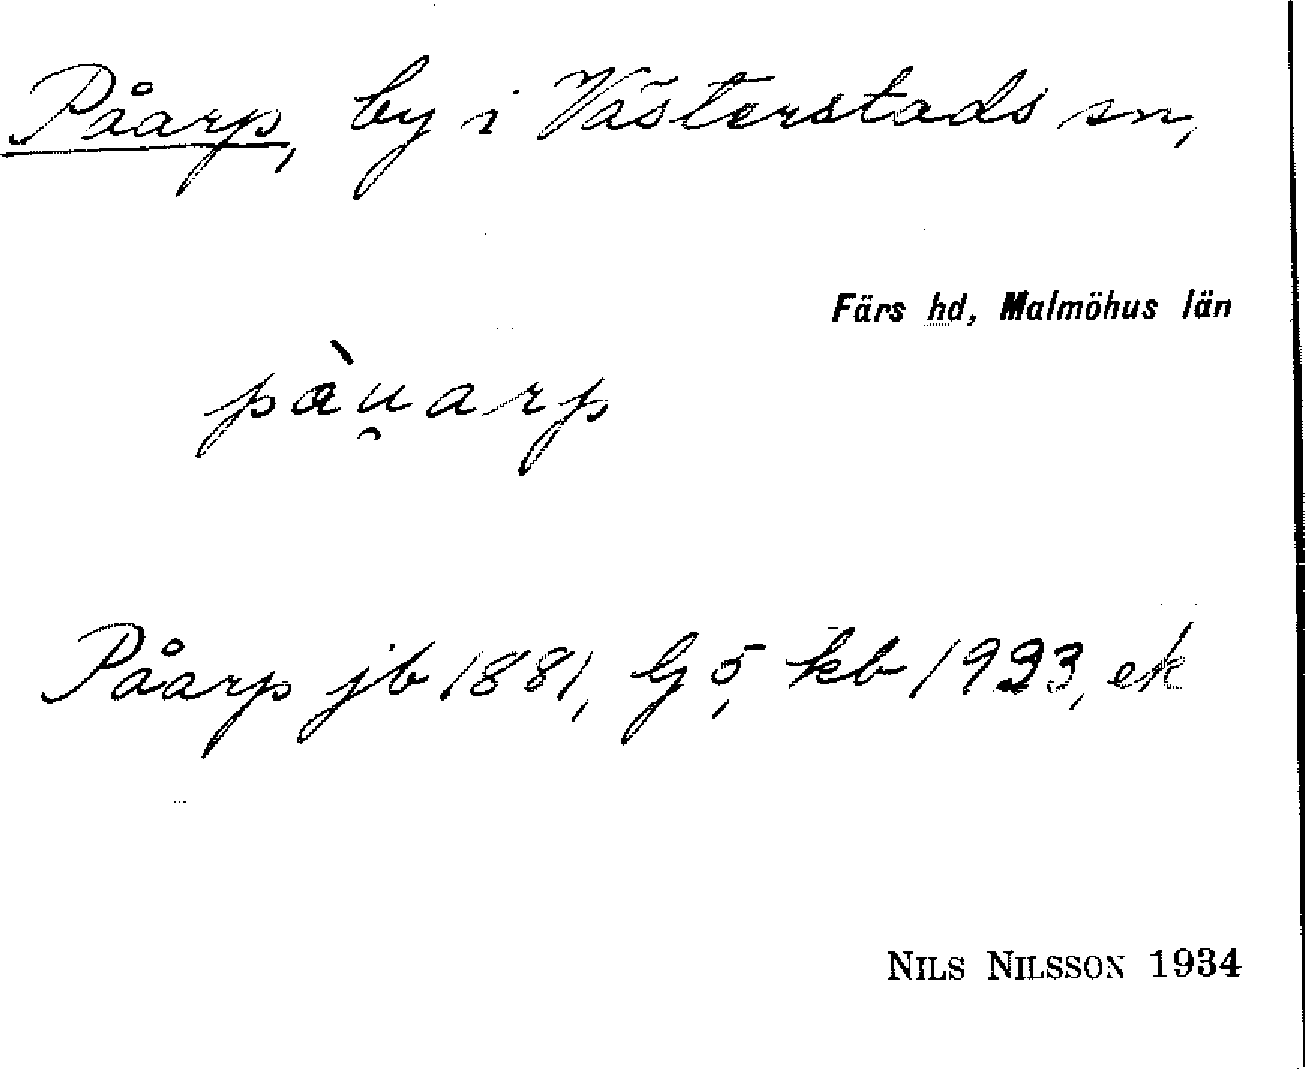 Påarp, by i Västerstads sn,
Färs hd, Malmöhus län
pàu̯arp
Påarp jb 1881, Gö, kb 1923, ek
NILS NILSSON 1934